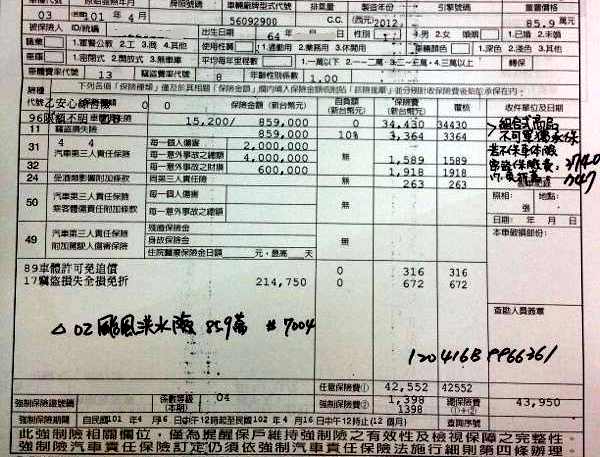 發照年月 廠牌車型代號 車輛廠牌型式代號 排氣量 製造年份 引擎號碼 重置價格
03 101 年 4 月 56092900 C.C. (西元)2012 85.9 萬元
被保險人 ID/統編 出生日期 64 年 性別 1.男 2.女 婚姻 1.已婚 2.未婚
職業 1.軍警公教 2.工 3.商 4.其他 使用性質 1.通動用 2.業務用 3.休閒用 車輛顏色 1.深色 2.淺色 3.其他
車庫 1.密閉式 2.開放式 3.無車庫 平均每年里程數 1.一萬以下 2.一~二萬 3.二~三萬 4.三萬以上 轉保
車體費率代號 13 竊盜費率代號 8 年齡性別係數 1.00
代號 乙安心綜合險 0 0 保險金額 (新台幣元) 自負額 (新台幣元) 保險費 (新台幣元) 覆核 收件單位及日期
96限額不明 15,200/ 859,000 0 34,430 34430
11 竊盜損失險 859,000 10% 3,364 3364
31 4 4 汽車第三人責任保險 每一個人傷害 2,000,000
每一意外事故之傷害 4,000,000 無 1,589 1589
32 每一意外事故之財損 600,000 1,918 1918
24 受酒類影響附加條款 同第三人責任險 無 263 263
50 汽車第三人責任保險 乘客體傷責任附加條款 每一個人傷害 無
每一意外事故之總額
49 汽車第三人責任保險 附加駕駛人傷害保險 殘廢保險金 無
身故保險金
住院醫療保險金日額 元,最高 天
組合式商品
不可單獨承保
若不保車体險
照相: 地點:
張
日期: 年 月 日
本車破損部份:
89車體許可免追償 0 316 316
17竊盜損失全損免折 214,750 0 672 672
查勘人員簽章
△ 02 颱風洪水險 859萬 # 7004
120416B9966361
任意保險費① 42,552 42552
強制保險證號碼 係數等級 (本期) 04 強制保險費② 1,398 1398 總保險費 (①+②) 43,950
強制保險期間 自民國101年 4月16日中午12時起至民國102年 4月16日中午12時止(12個月) 查詢序號
此強制險相關欄位,僅為提醒保戶維持強制險之有效性及檢視保障之完整性。
強制險汽車責任保險訂定仍須依強制汽車責任保險法施行細則第四條辦理。